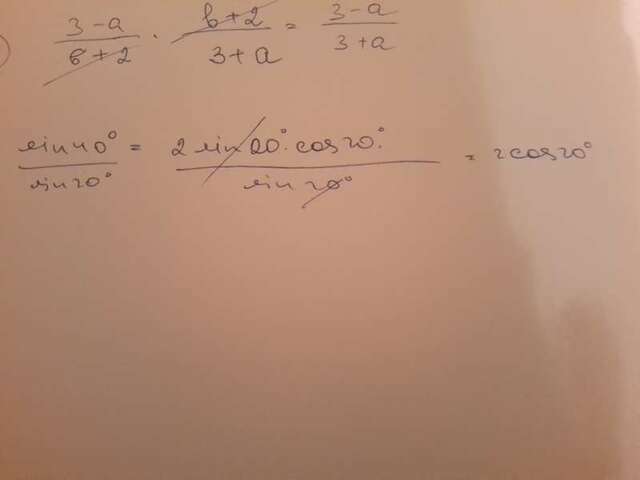 (3-a)/(b+2) · (b+2)/(3+a) = (3-a)/(3+a)
sin40°/sin20° = 2 sin20°·cos20°/sin20° = 2cos20°